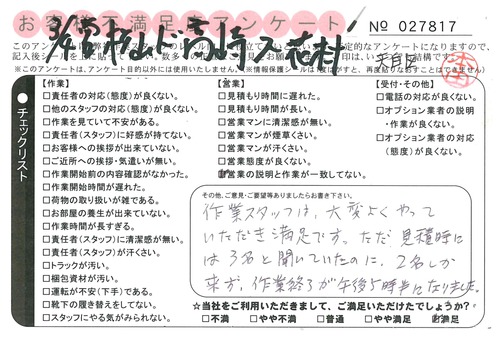 お客様不満足度アンケート
№ 027817
※このアンケートは、アンケート目的以外には使用いたしません。
チェックリスト
【作業】
□責任者の対応(態度)が良くない。
□他のスタッフの対応(態度)が良くない。
□作業を見ていて不安がある。
□責任者(スタッフ)に好感が持てない。
□お客様への挨拶が出来ていない。
□ご近所への挨拶・気遣いが無い。
□作業開始前の内容確認がなかった。
□作業開始時間が遅れた。
□荷物の取り扱いが雑である。
□お部屋の養生が出来ていない。
□作業時間が長すぎる。
□責任者(スタッフ)に清潔感が無い。
□責任者(スタッフ)が汗くさい。
□トラックが汚い。
□梱包資材が汚い。
□運転が不安(下手)である。
□靴下の履き替えをしてない。
□スタッフにやる気がみられない。
【営業】
□見積もり時間に遅れた。
□見積もり時間が長い。
□営業マンに清潔感が無い。
□営業マンが煙草くさい。
□営業マンが汗くさい。
□営業態度が良くない。
□営業の説明と作業が一致してない。
【受付・その他】
□電話の対応が良くない。
□オプション業者の説明
・作業が良くない。
□オプション業者の対応
(態度)が良くない。
その他、ご意見・ご要望等ありましたらお書き下さい。
作業スタッフは、大変よくやって
いただき満足です。ただ見積時に
は3名と聞いていたのに、2名しか
来ず、作業終了が午後5時半になりました。
☆当社をご利用いただきまして、ご満足いただけたでしょうか?
□不満 □やや不満 □普通 □やや満足 □満足